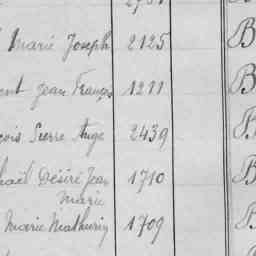 Marie Joseph 2125 B
Jean François 1211 B
Pierre Ange 2439 B
Désiré Jean 1710 B
Marie
Marie Mathurin 1709 B